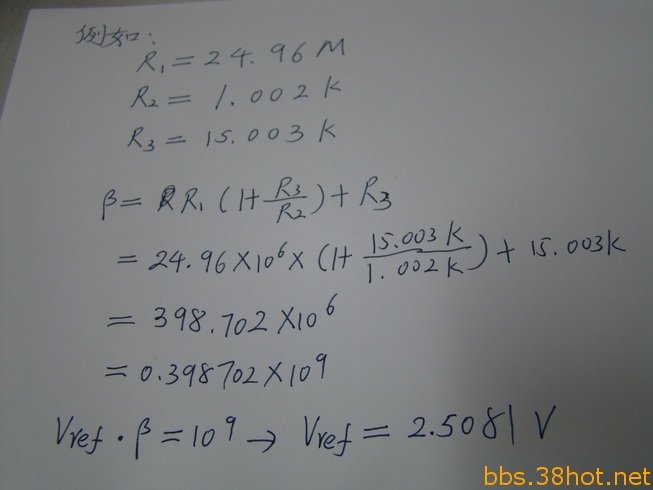 例如:
R₁ = 24.96 M
R₂ = 1.002 K
R₃ = 15.003 K
β = R₁ (1+ R₃/R₂) + R₃
= 24.96 × 10⁶ × (1+ 15.003 K/1.002 K) + 15.003 K
= 398.702 × 10⁶
= 0.398702 × 10⁹
Vref · β = 10⁹ → Vref = 2.5081 V
bbs.38hot.net